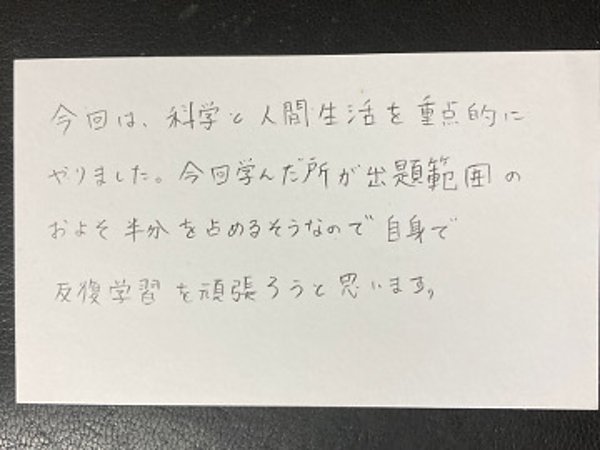 今回は、科学と人間生活を重点的に
やりました。今回学んだ所が出題範囲の
およそ半分を占めるそうなので自身で
反復学習を頑張ろうと思います。